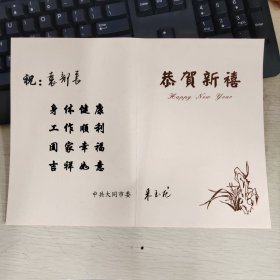 祝：袁部长
身体健康
工作顺利
阖家幸福
吉祥如意
中共大同市委
恭賀新禧
Happy New Year